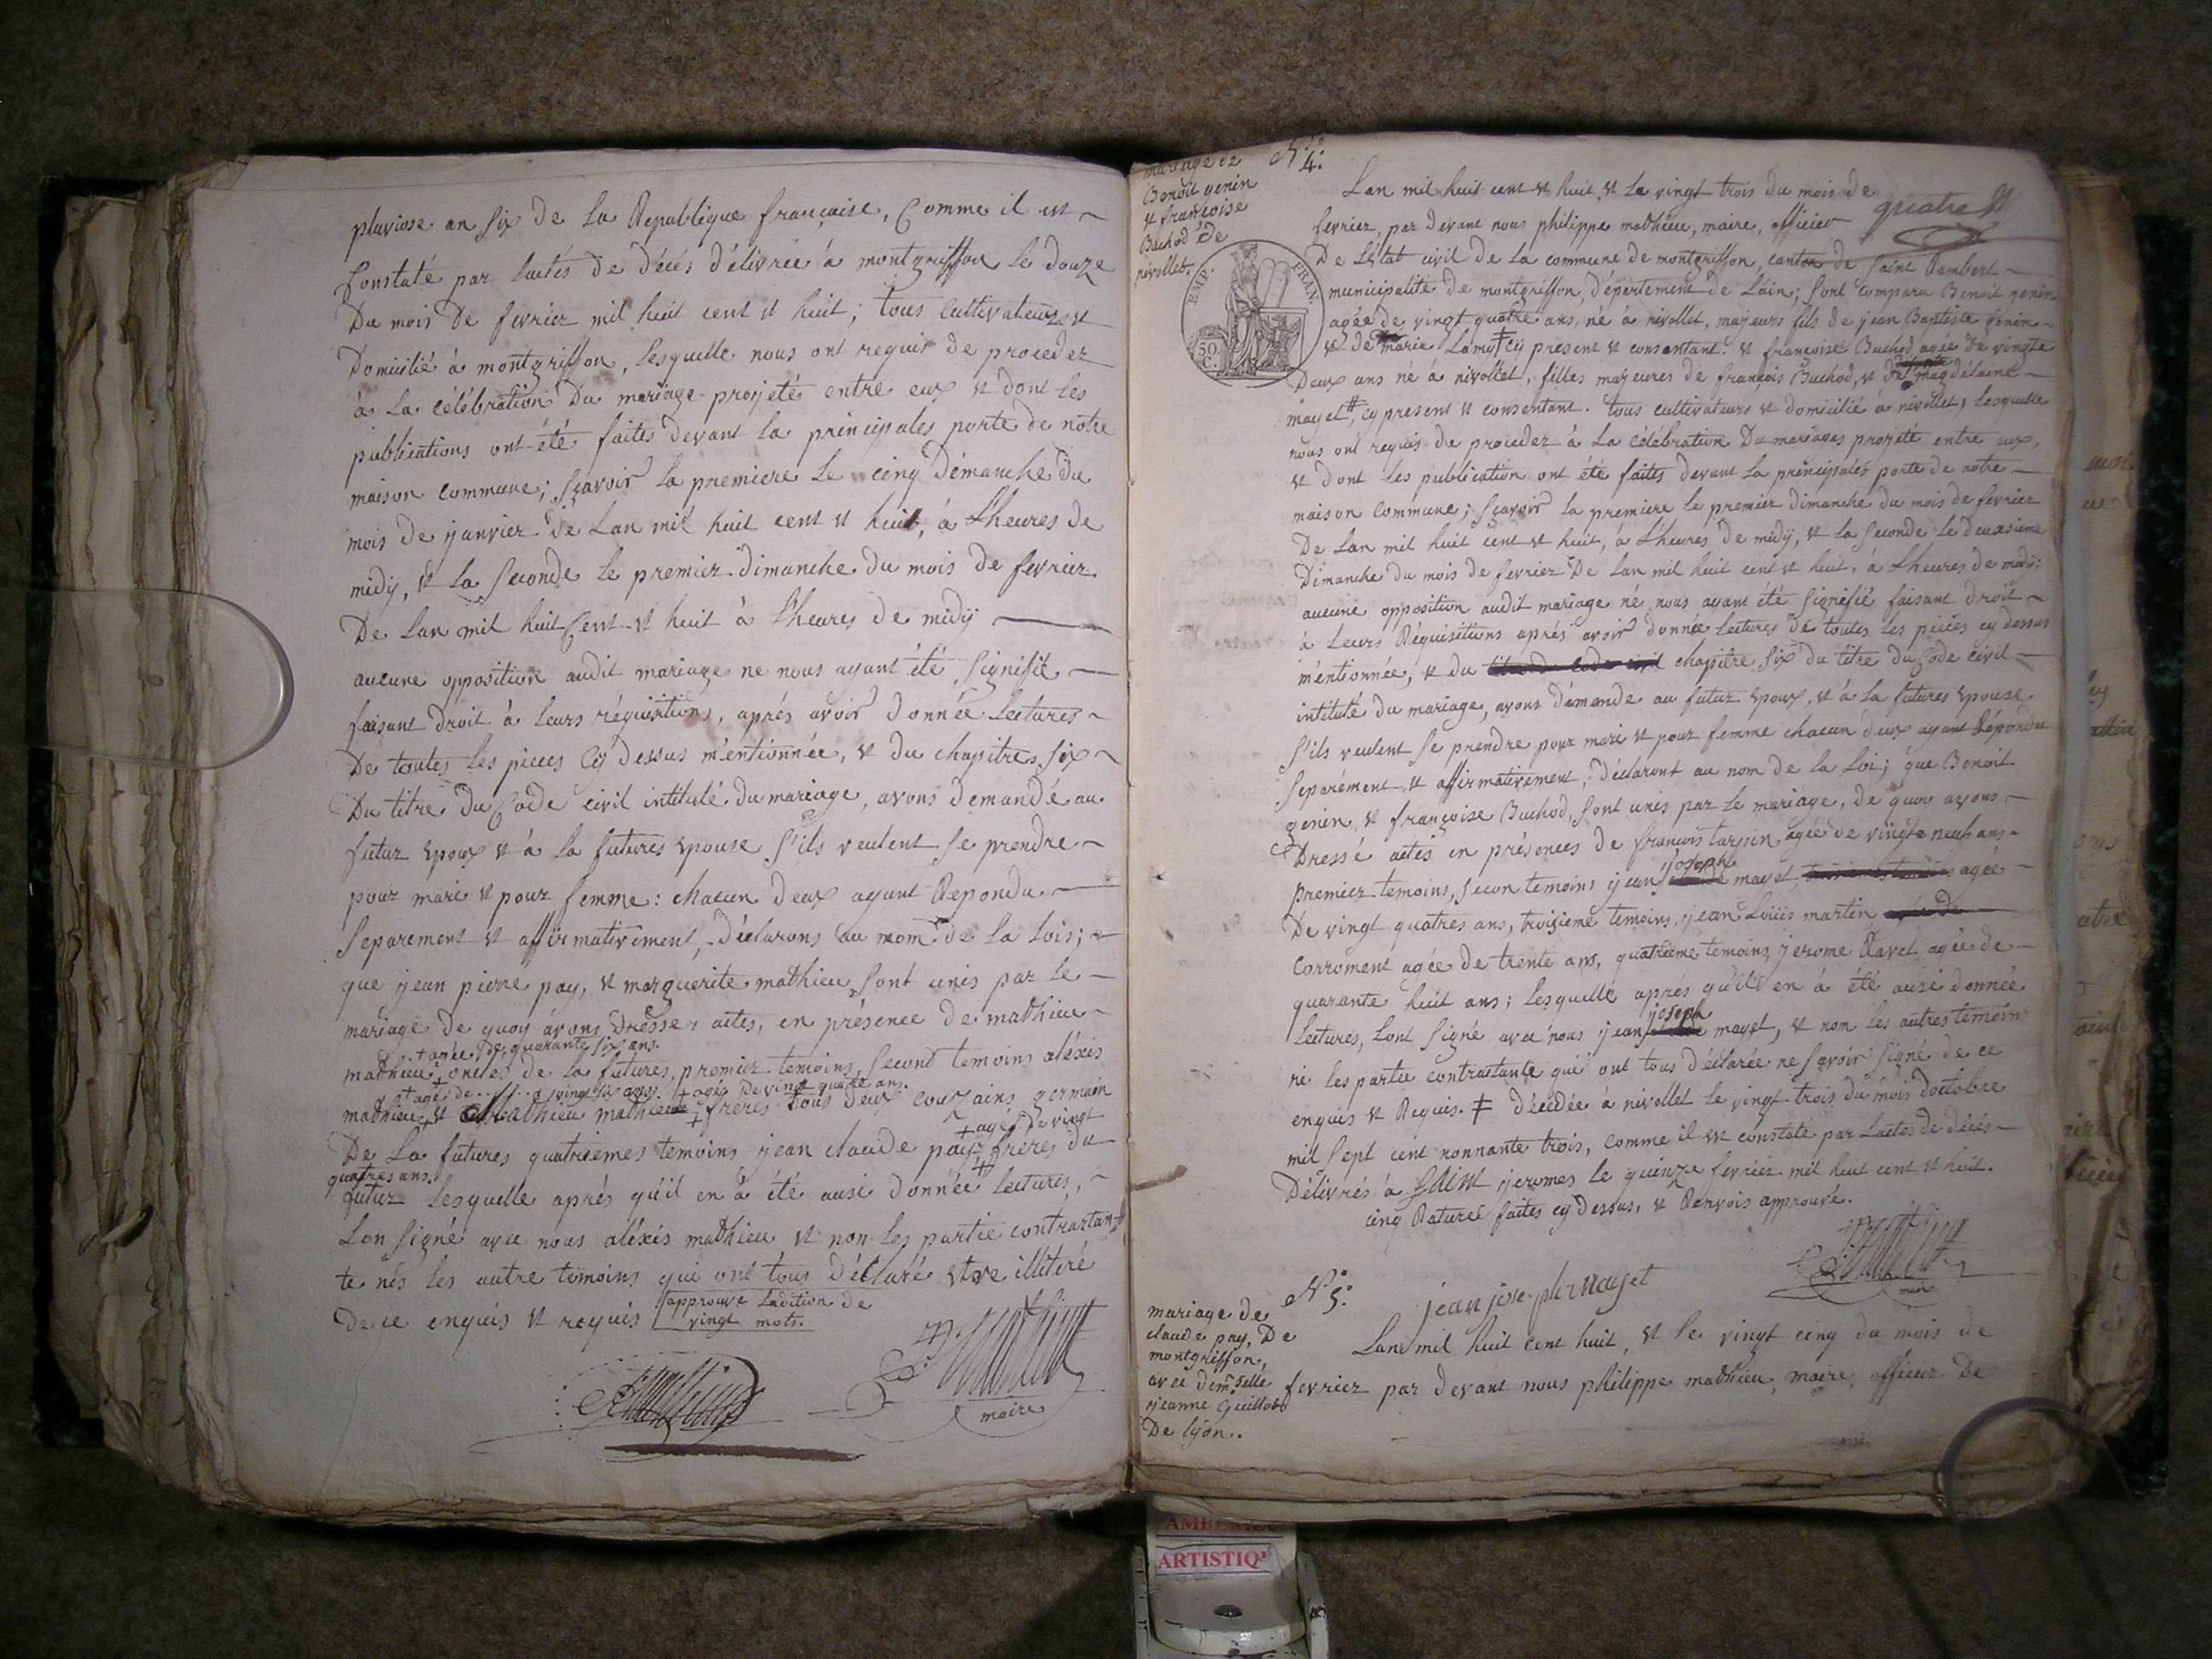 pluviose an six de la Republique française, Comme il est
Constaté par l'actes de décés délivrée à montgriffon le douze
Du mois De fevrier mil huit cent et huit; tous cultivateurs et
Domicilié à montgriffon, lesquelle nous ont requis de proceder
à la célébration Du mariage projeté entre eux et dont les
publications ont été faites devant la principales porte de notre
maison commune; sçavoir la premiere le cinq démanche du
mois de janvier De Lan mil huit cent et huit, à L'heures de
midy, et la seconde le premier dimanche du mois de fevrier
De Lan mil huit Cent et huit à L'heures de midy
aucune opposition audit mariage ne nous ayant été signifié
faisant droit à leurs réquisitions, aprés avoir donnée lectures
De toutes les pieces cy dessus mentionnée, et du chapitres six
Du titre Du Code civil intitulé du mariage, avons demandé au
futur epoux et à la futures epouse s'ils veulent se prendre
pour mari et pour femme: chacun deux ayant Repondu
Separement et affirmativement, déclarons au nom de la lois;
que jean pierre pay, et marguerite mathieu sont unis par le
mariage De quoy avons Dresser actes, en présence De mathieu
+ agée de quarante six ans.
mathieu + oncles de la futures, premier temoins, second temoins aléxis
+ agé de vingt six ans. + agée de vingt quatre ans.
mathieu + et mathieu mathieu + freres tous deux couzains germain
+ agés De vingt
De La futures quatriemes temoins jean claude pay freres du
quatres ans.
futur lesquelle aprés qu'il en à été ausi donnée lectures,
Lon signé avec nous aléxis mathieu et non les partie contractan
te nés les autre temoins qui ont tous déclaré etre illiteré
De ce enquis et requis approuvé Ladition de
vingt mots.
maire
mariage de
Benoit genin
et françoise
Buchod de
nivollet.
N.º 4.
quatre
Lan mil huit cent et huit, et le vingt trois du mois de
fevrier, par devant nous philippe mathieu, maire, officier
De L'état civil de la commune de montgriffon, canton de saint Rambert
EMP. FRAN.
50 C.
municipalité de montgriffon, département de L'ain; sont comparu Benoit genin
agée de vingt quatre ans, né à nivollet, majeurs fils de jean Baptiste genin
et de marie Lamy ‡ cy présent et consentant. et françoise Buchod agée de vingte
Deux ans né à nivollet, filles majeures de françois Buchod, et de magdelaine
mayet, cy present et consentant. tous cultivateurs et domicilié à nivollet, lesquelle
nous ont requis de proceder à la célébration Du mariages projeté entre eux,
et dont les publication ont été faites devant la principales porte de notre
maison commune; sçavoir la premiere le premier dimanche du mois de fevrier
De Lan mil huit cent et huit, à L'heures de midy, et la seconde le deuxsieme
Dimanche du mois de fevrier De Lan mil huit cent et huit, à L'heures de midy;
aucune opposition audit mariage né nous ayant été signifié faisant droit
à leurs Réquisitions aprés avoir donnée lectures de toutes les piéces cy dessus
mentionnée, et du chapitre six du titre Du Code civil
intitulé du mariage, avons démande au futur epoux, et à la futures epouse
s'ils veulent se prendre pour mari et pour femme chacun deux ayant Répondu
Separément et affirmativement, déclaront au nom de la Loi; que Benoit
genin et françoise Buchod, sont unis par le mariage, de quoy avons
Dressé actes en présences de françois tarpin agée de vingte neuf ans
joseph
premier temoins, secon temoins jean mayet, agée
De vingt quatres ans, troisieme temoins jean Loüis martin
Corroment agée De trente ans, quatrieme temoins jerome Ravet agée de
quarante huit ans; lesquelle aprés qu'ils en à été ausi donnée
joseph
Lectures, Lont signé avec nous jean mayet, et non les autres temoins
ni les partie contractante qui ont tous déclarée ne savoir signé de ce
enquis et Requis. ‡ décédée à nivollet le vingt trois du mois doctobre
mil sept cent nonnante trois, comme il est constaté par Lactes de décés
Délivrés à saint jeromes le quinze fevrier mil huit cent et huit.
cinq Raturee faites cy dessus, et Renvois approuvé.
jean joseph mayet
maire
mariage de
claude pay, De
montgriffon,
avec demselle
jeanne Guillot
De lyon.
N.º 5.
Lan mil huit cent huit, et le vingt cinq du mois de
fevrier par devant nous philippe mathieu, maire, officier De
ARTISTIQ